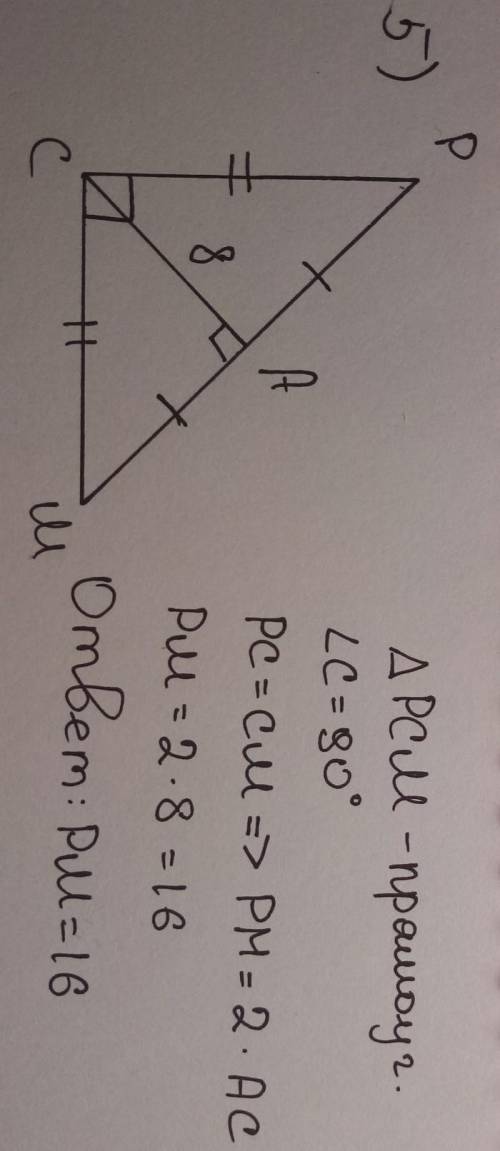 5)
P
C
8
A
M
Δ PCM - прямоуг.
∠C = 90°
PC = CM => PM = 2 · AC
PM = 2 · 8 = 16
Ответ: PM = 16